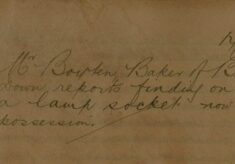 Mr Bowtens Baker of B
down reports finding on
a lamp socket now
possession.